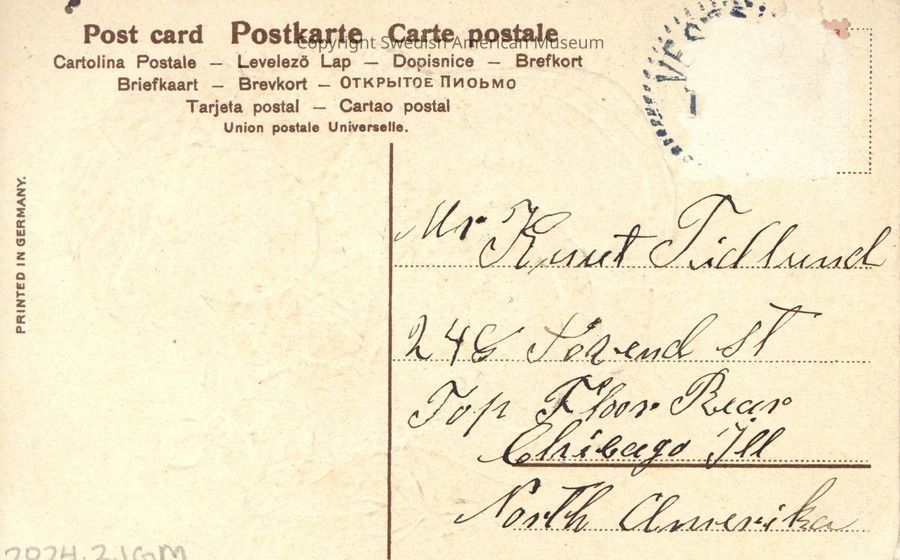 Post card Postkarte Carte postale
Copyright Swedish American Museum
Cartolina Postale — Levelező Lap — Dopisnice — Brefkort
Briefkaart — Brevkort — ОТКРЫТОЕ ПИСЬМО
Tarjeta postal — Cartao postal
Union postale Universelle.
PRINTED IN GERMANY.
Mr Knut Tidlund
246 Tovend St
Top Floor Rear
Chicago Ill
North Amerika